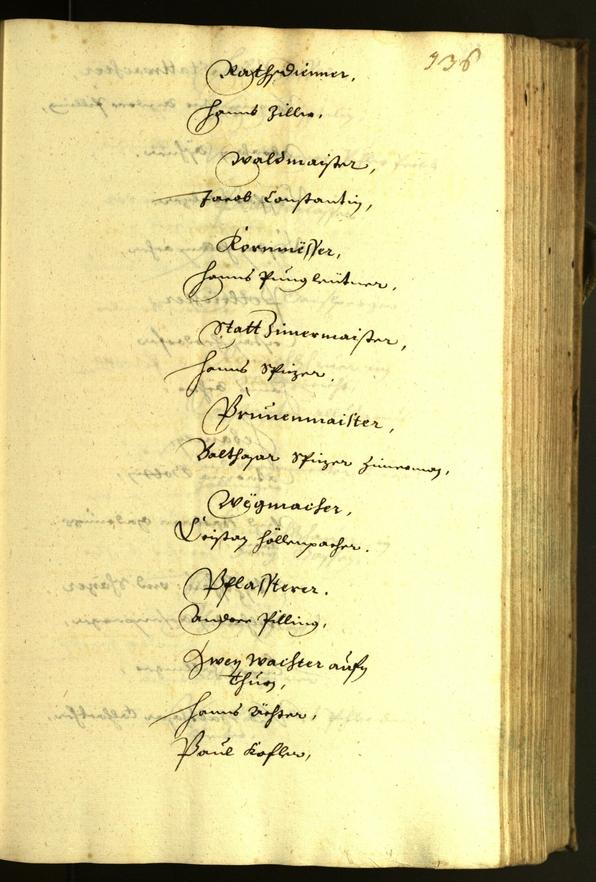 936
Rathsdienner,
Hanns Ziller.
Waldmaister,
Jacob Constantin,
Kornmësser,
Hanns Pungleütner,
Statt Zimermaister,
Hanns Spizer,
Prünenmaister,
Balthasar Spizer Zimerman,
Wëgmacher,
Cristan Höllenpacher.
Pflassterer.
Andree Pilling,
Zwen Wachter aufn
Thurn,
Hanns
Paul Kofler,